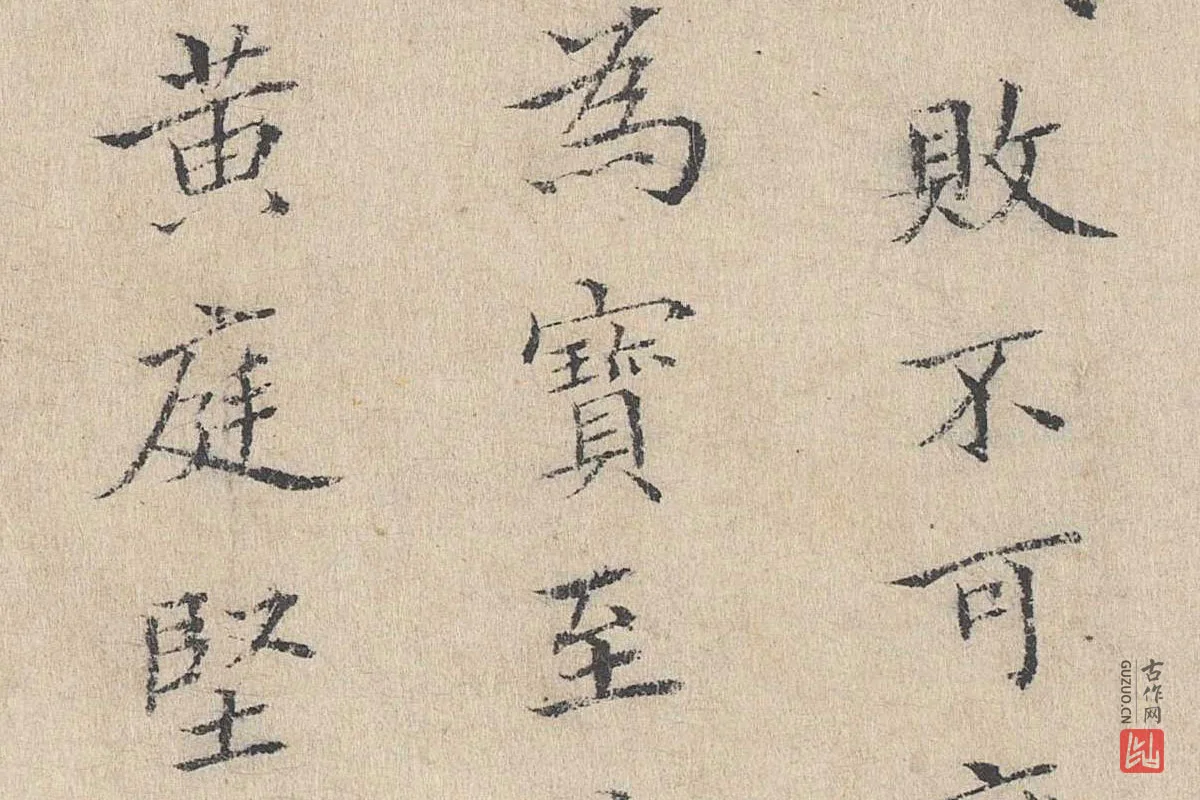 敗不可
為寶至
黃庭堅
古作网
GUZUO.CN